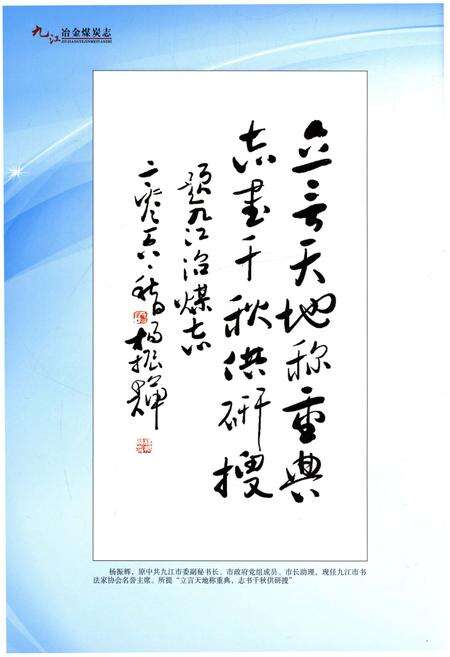 九江冶金煤炭志
JIUJIANGYEJINMEITANZHI
立言天地称重典
志书千秋供研搜
题九江冶煤志
二零一六年春 杨振辉
杨振辉，原中共九江市委副秘书长、市政府党组成员、市长助理，现任九江市书
法家协会名誉主席。所提“立言天地称重典，志书千秋供研搜”